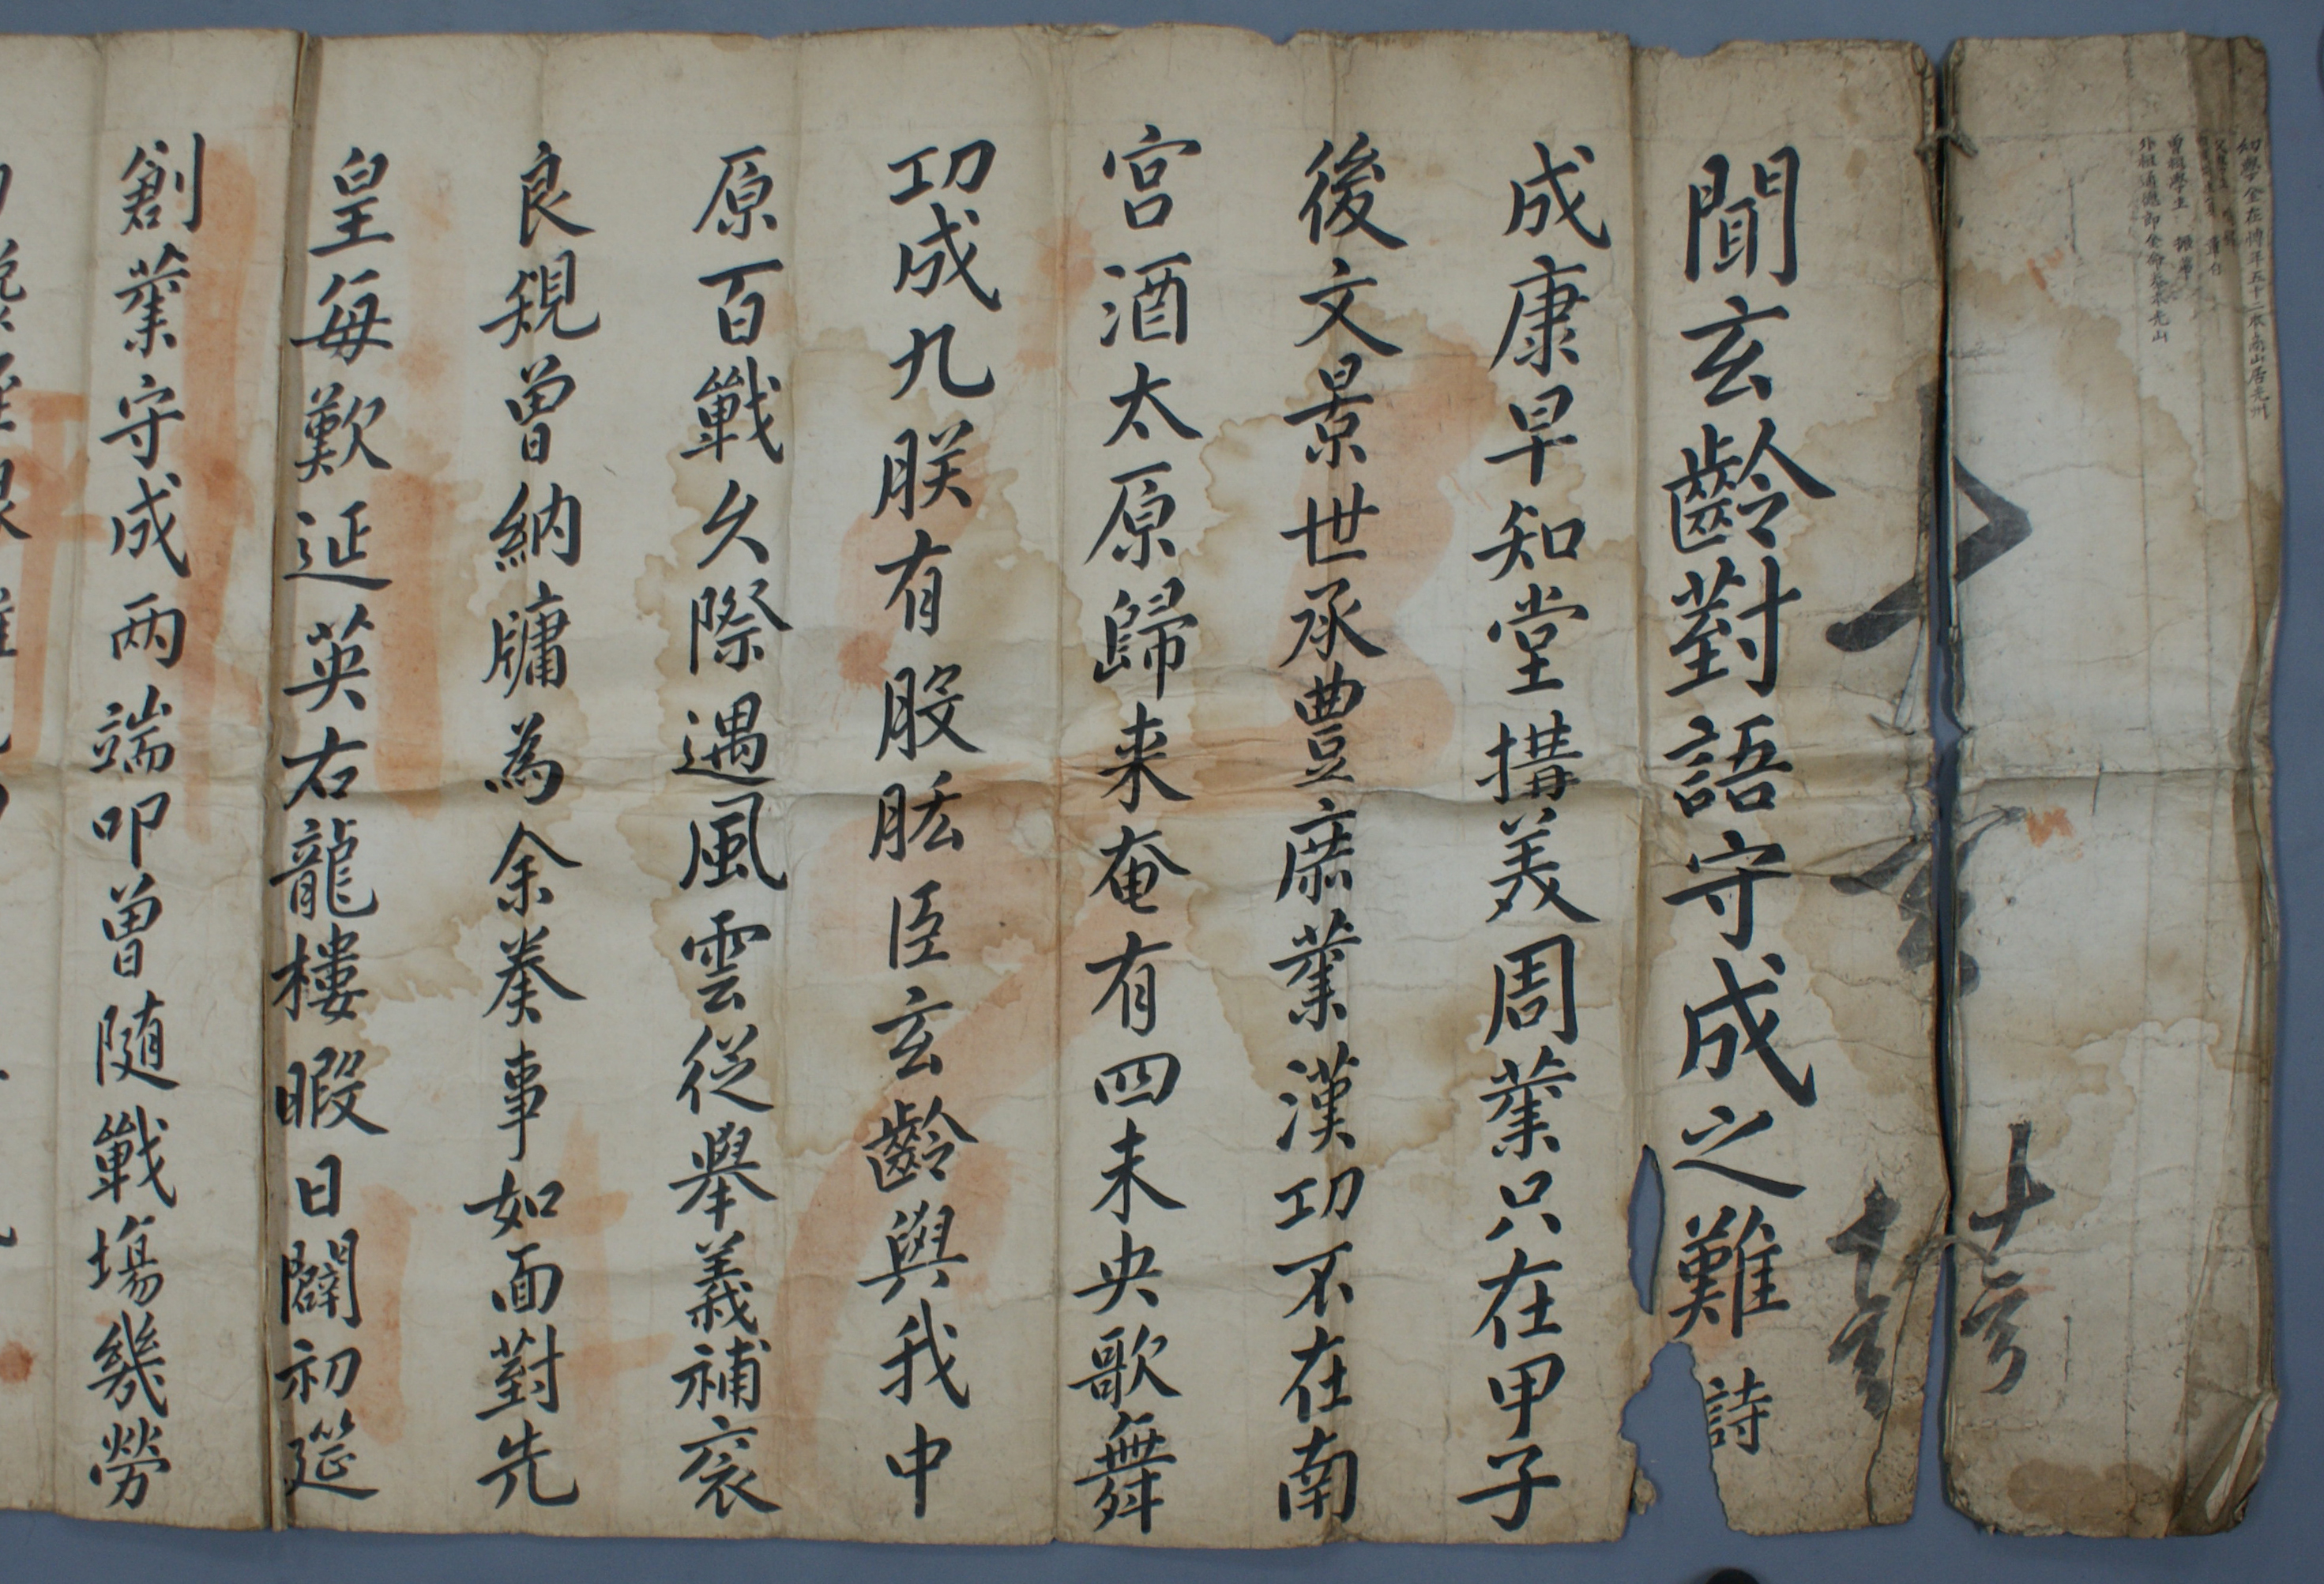 幼學金在博年五十二本南山居光州
曾祖學生
外祖通德郞金
十
聞玄齡對語守成之難 詩
成康早知堂搆美周業只在甲子
後文景世承豊庶業漢功不在南
宮酒太原歸来奄有四未央歌舞
功成九朕有股肱臣玄齡與我中
原百戰久際遇風雲從擧義補袞
良規曽納牖為余奏事如面對先
皇每歎延英右龍樓暇日闢初筵
創業守成兩端叩曽随戰場幾勞